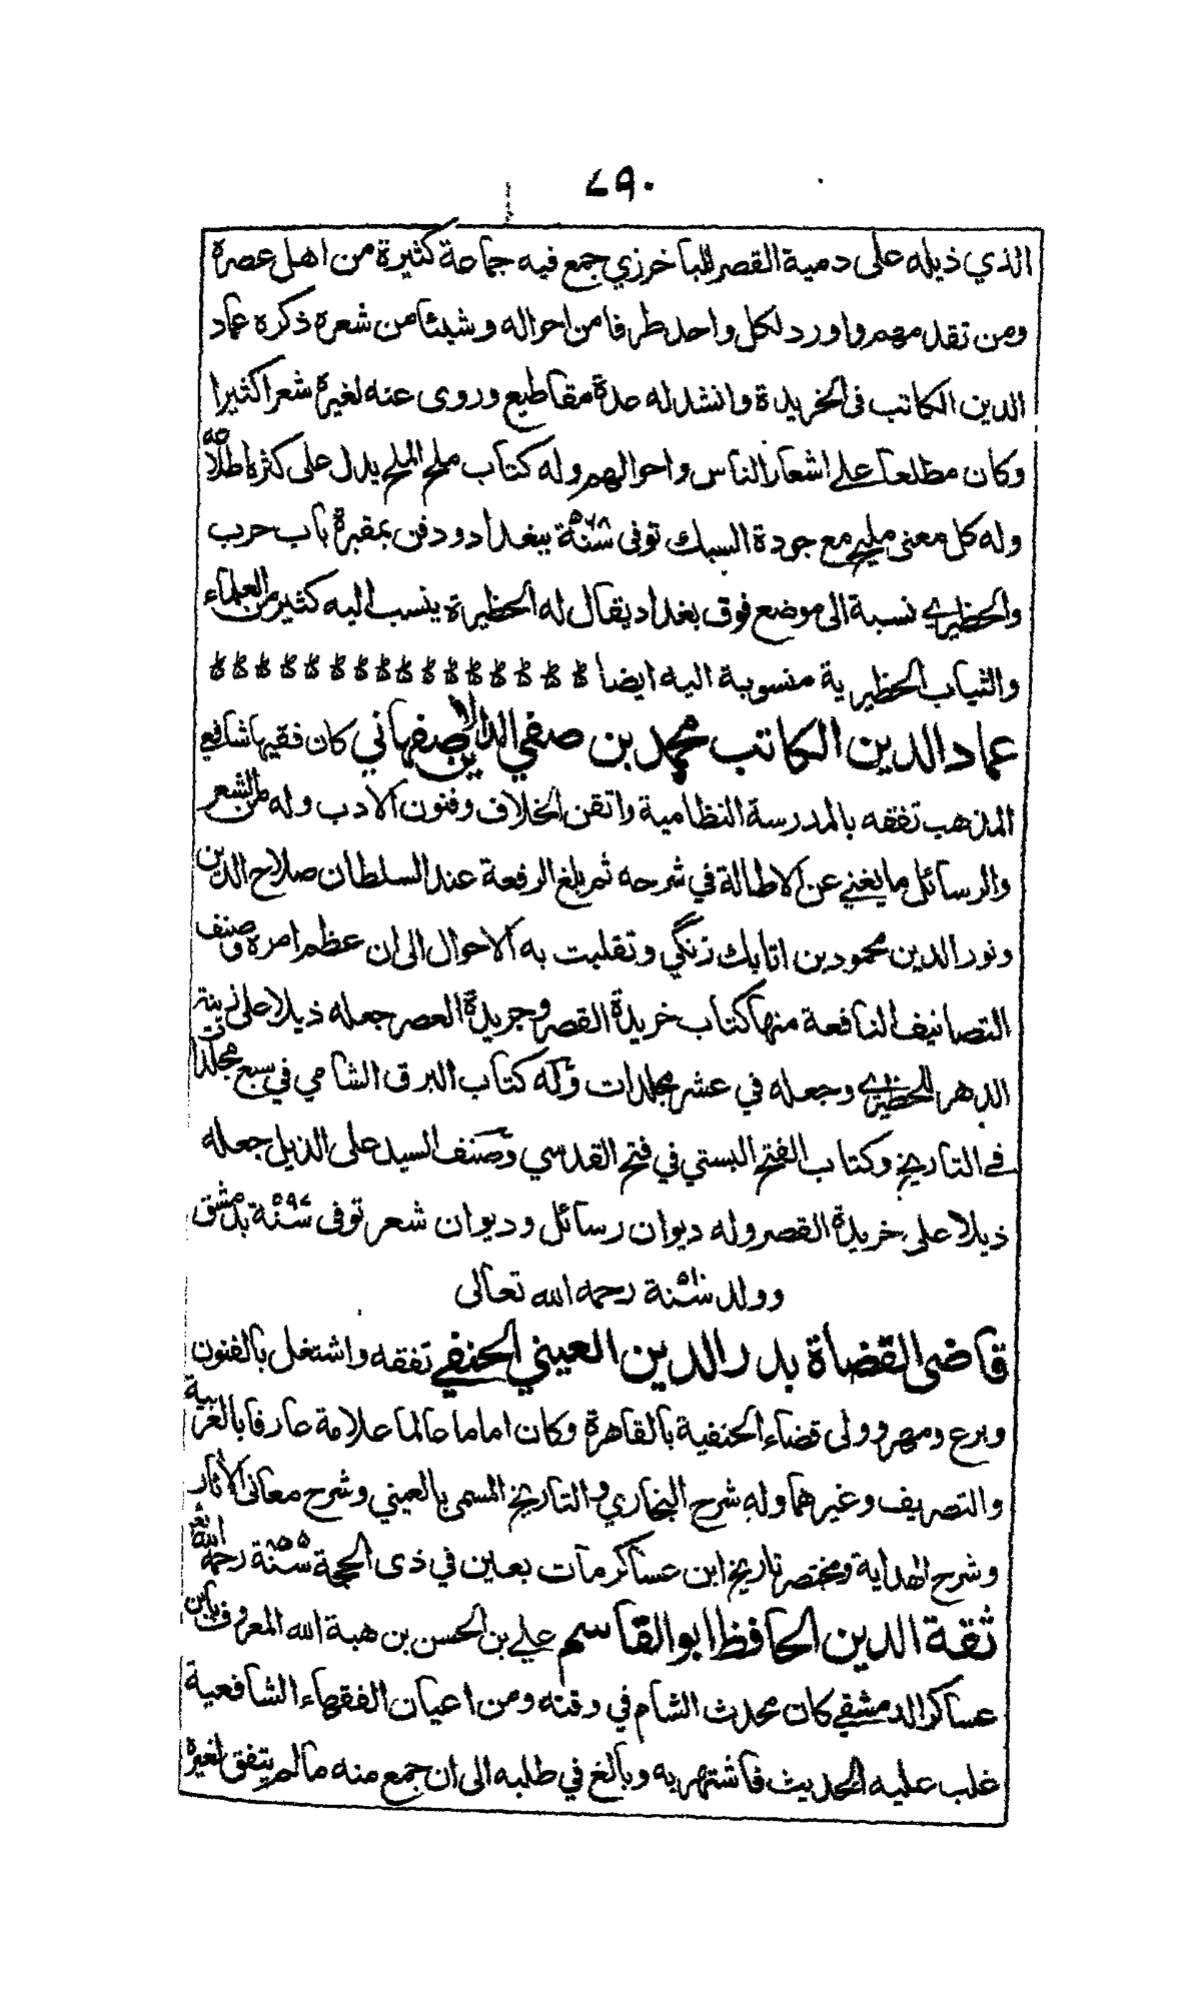 ٧٩٠
الذي ذيله على دمية القصر للباخرزي جمع فيه جماعة كثيرة من اهل عصره
ومن تقدمهم واورد لكل واحد طرفا من احواله وشيئا من شعره ذكره عماد
الدين الكاتب في الخريدة وانشد له عدة مقاطيع وروى عنه لغيره شعرا كثيرا
وكان مطلعا على اشعار الناس واحوالهم وله كتاب ملح الملح يدل على كثرة اطلاعه
وله كل معنى مليح مع جودة السبك توفى سنة ٥٦٨ ببغداد ودفن بمقبرة باب حرب
والحظيري نسبة الى موضع فوق بغداد يقال له الحظيرة ينسب اليه كثير من العلماء
والثياب الحظيرية منسوبة اليه ايضا
عماد الدين الكاتب محمد بن صفي الدين الاصفهاني كان فقيها شافعي
المذهب تفقه بالمدرسة النظامية واتقن الخلاف وفنون الادب وله من الشعر
والرسائل ما يغني عن الاطالة في شرحه ثم بلغ الرفعة عند السلطان صلاح الدين
ونور الدين محمود بن اتابك زنگي وتقلبت به الاحوال الى ان عظم امره وصنف
التصانيف النافعة منها كتاب خريدة القصر وجريدة العصر جعله ذيلا على زينة
الدهر للحظيري وجعله في عشر مجلدات وله كتاب البرق الشامي في سبع مجلدات
في التاريخ وكتاب الفتح البستي في فتح القدسي وصنف السيد على الذيل جعله
ذيلا على خريدة القصر وله ديوان رسائل وديوان شعر توفى سنة ٥٩٧ بدمشق
وولد سنة رحمه الله تعالى
قاضى القضاة بدر الدين العيني الحنفي تفقه واشتغل بالفنون
وبرع ومهر وولى قضاء الحنفية بالقاهرة وكان اماما عالما علامة عارفا بالعربية
والتصريف وغيرهما وله شرح البخاري والتاريخ المسمى بالعيني وشرح معاني الاثار
وشرح الهداية ومختصر تاريخ ابن عساكر مات بعلين في ذى الحجة سنة ٨٥٥ رحمه الله تع
ثقة الدين الحافظ ابو القاسم علي بن الحسن بن هبة الله المعروف بابن
عساكر الدمشقي كان محدث الشام في وقته ومن اعيان الفقهاء الشافعية
غلب عليه الحديث فاشتهر به وبالغ في طلبه الى ان جمع منه ما لم يتفق لغيره